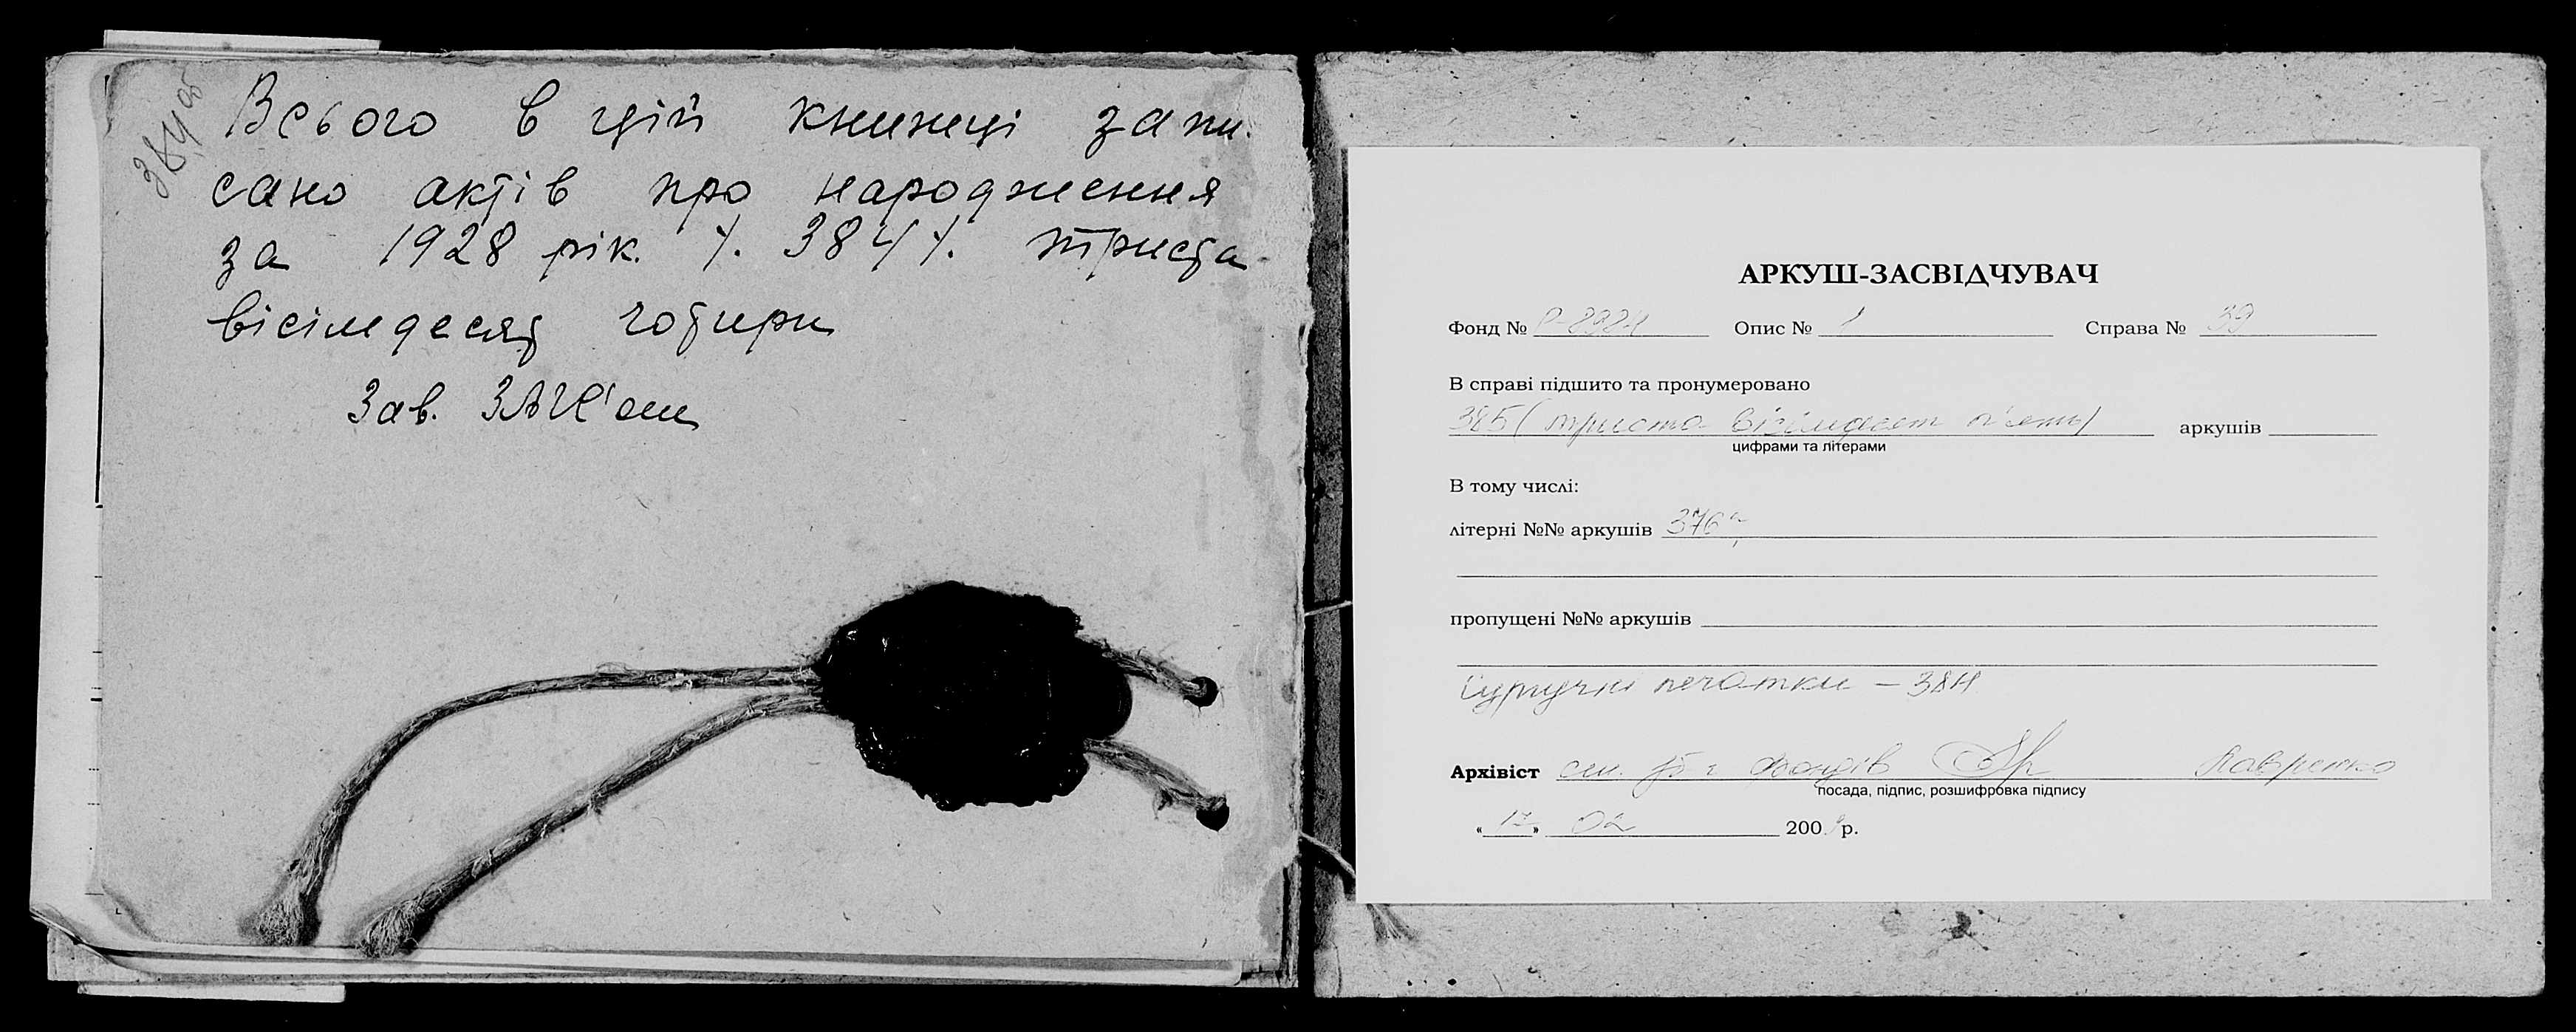 384 об
Всього в цій книжці запи-
сано актів про народження
за 1928 рік. /. 384 /. триста
вісімдесят чотири
Зав. ЗАГС'ом
АРКУШ-ЗАСВІДЧУВАЧ
Фонд № Р-8984 Опис № 1 Справа № 39
В справі підшито та пронумеровано
385 (триста вісімдесят п'ять) аркушів
цифрами та літерами
В тому числі:
літерні №№ аркушів 376а
пропущені №№ аркушів
Сургучні печатки – 384
Архівіст фондів
посада, підпис, розшифровка підпису
« 17 » 02 200 р.